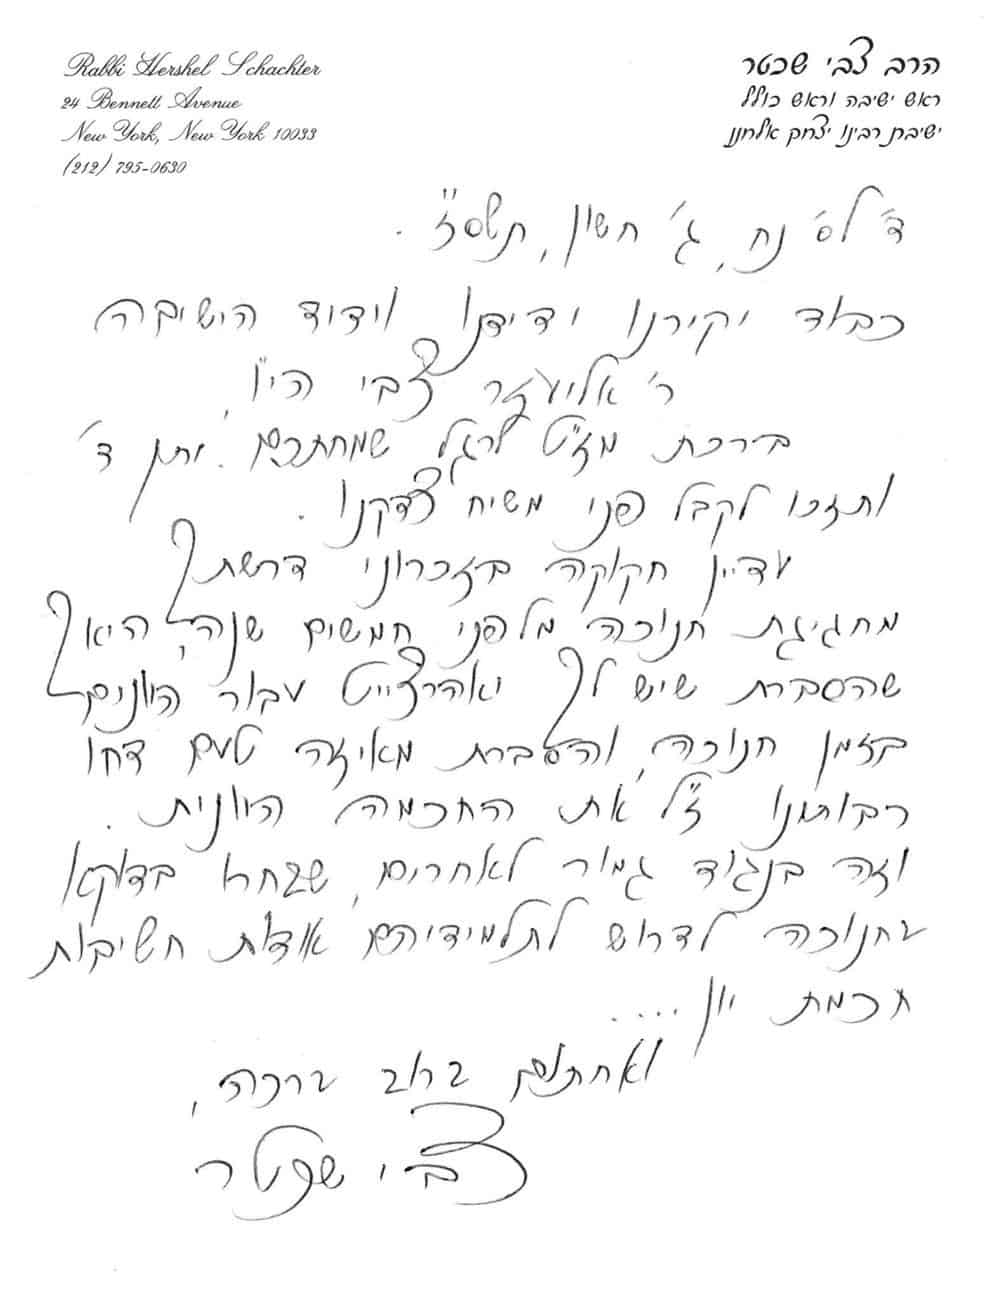 Rabbi Hershel Schachter
24 Bennett Avenue
New York, New York 10033
(212) 795-0630
הרב צבי שכטר
ראש ישיבה וראש כולל
ישיבת רבינו יצחק אלחנן
ד' לס' נח, ג' חשון, תשס"ז.
כבוד יקירנו ידידנו וידיד הישיבה
ר' אליעזר צבי הי"ו,
ברכת מז"ט לרגל שמחתכם. יתן ד'
ותזכו לקבל פני משיח צדקנו.
עדיין חקוקה בזכרוני דרשתך
מחגיגת חנוכה מלפני חמשים שנה, היאך
שהסברת שיש לך יאהרצייט עבור היוונים
בזמן חנוכה, והסברת מאיזה טעם דחו
רבותינו ז"ל את החכמה היוונית.
וזה בנגוד גמור לאחרים, שבחרו בדוקא
בחנוכה לדרוש לתלמידיהם אודות חשיבות
חכמת יון ....
ואחתום ברוב ברכה,
צבי שכטר